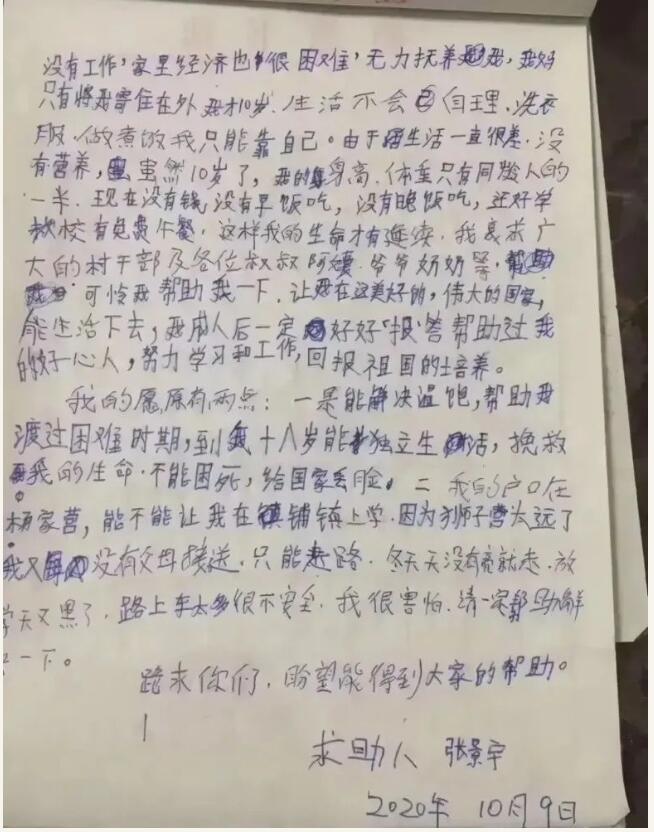 没有工作,家里经济也很困难,无力抚养我,我妈
只有将我寄住在外,我才10岁.生活不会自理.洗衣
服.做煮饭我只能靠自己。由于生活一直很差.没
有营养,虽然10岁了,我的身高.体重只有同龄人的
一半.现在没有钱,没有早饭吃,没有晚饭吃,还好学
校有免费午餐,这样我的生命才有延续.我哀求广
大的村干部及各位叔叔阿姨.爷爷奶奶等.
可怜我帮助我一下.让我在这美好的,伟大的国家,
能生活下去,我成人后一定好好报答帮助过我
的好心人,努力学习和工作,回报祖国的培养。
我的愿原有两点:一是能解决温饱,帮助我
渡过困难时期,到我十八岁能独立生活,挽救
我的生命.不能困死,给国家丢脸。二我的户口在
杨家营,能不能让我在镇铺镇上学.因为狮子营太远了
我又没有父母接送.只能走路.冬天天没有亮就走.放
学天又黑了.路上车太多很不安全.我很害怕.请一定帮助解
一下。
跪求你们,盼望能得到大家的帮助。
求助人 张景宇
2020年10月9日